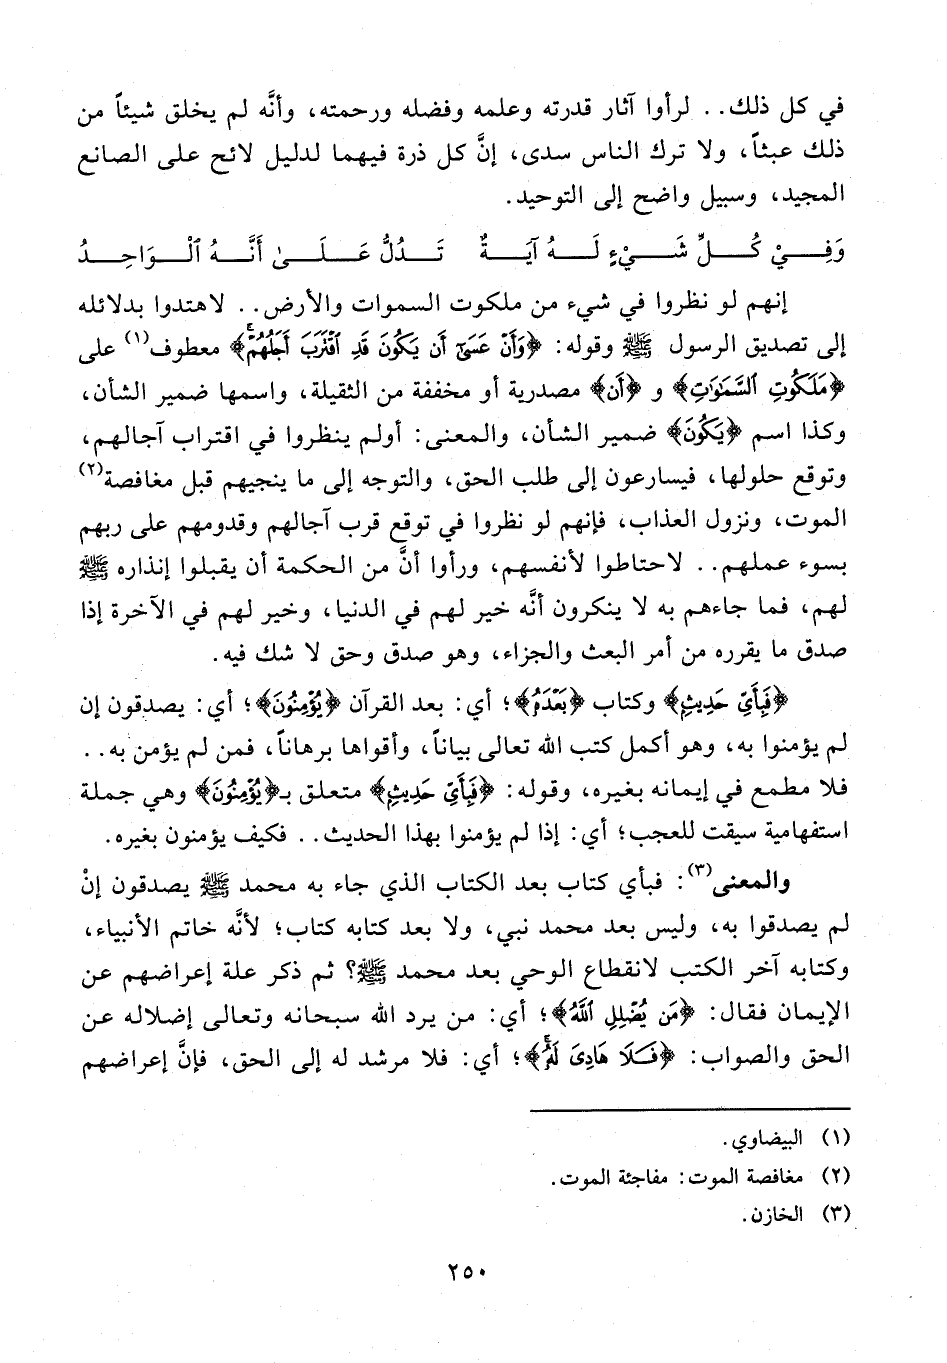 في كل ذلك.. لرأوا آثار قدرته وعلمه وفضله ورحمته، وأنَّه لم يخلق شيئاً من
ذلك عبثاً، ولا ترك الناس سدى، إنَّ كل ذرة فيهما لدليل لائح على الصانع
المجيد، وسبيل واضح إلى التوحيد.
وَفِيْ كُلِّ شَيْءٍ لَهُ آيَةٌ تَدُلُّ عَلَىٰ أَنَّهُ ٱلْوَاحِدُ
إنهم لو نظروا في شيء من ملكوت السموات والأرض.. لاهتدوا بدلائله
إلى تصديق الرسول ﷺ وقوله: ﴿وَأَنْ عَسَىٰٓ أَن يَكُونَ قَدِ ٱقْتَرَبَ أَجَلُهُمْۖ﴾ معطوف(١) على
﴿مَلَكُوتِ ٱلسَّمَٰوَٰتِ﴾ و ﴿أَن﴾ مصدرية أو مخففة من الثقيلة، واسمها ضمير الشأن،
وكذا اسم ﴿يَكُونَ﴾ ضمير الشأن، والمعنى: أولم ينظروا في اقتراب آجالهم،
وتوقع حلولها، فيسارعون إلى طلب الحق، والتوجه إلى ما ينجيهم قبل مغافصة(٢)
الموت، ونزول العذاب، فإنهم لو نظروا في توقع قرب آجالهم وقدومهم على ربهم
بسوء عملهم.. لاحتاطوا لأنفسهم، ورأوا أنَّ من الحكمة أن يقبلوا إنذاره ﷺ
لهم، فما جاءهم به لا ينكرون أنَّه خير لهم في الدنيا، وخير لهم في الآخرة إذا
صدق ما يقرره من أمر البعث والجزاء، وهو صدق وحق لا شك فيه.
﴿فَبِأَيِّ حَدِيثٍ﴾ وكتاب ﴿بَعْدَهُ﴾؛ أي: بعد القرآن ﴿يُؤْمِنُونَ﴾؛ أي: يصدقون إن
لم يؤمنوا به، وهو أكمل كتب الله تعالى بياناً، وأقواها برهاناً، فمن لم يؤمن به..
فلا مطمع في إيمانه بغيره، وقوله: ﴿فَبِأَيِّ حَدِيثٍ﴾ متعلق بـ﴿يُؤْمِنُونَ﴾ وهي جملة
استفهامية سيقت للعجب؛ أي: إذا لم يؤمنوا بهذا الحديث.. فكيف يؤمنون بغيره.
والمعنى(٣): فبأي كتاب بعد الكتاب الذي جاء به محمد ﷺ يصدقون إنْ
لم يصدقوا به، وليس بعد محمد نبي، ولا بعد كتابه كتاب؛ لأنَّه خاتم الأنبياء،
وكتابه آخر الكتب لانقطاع الوحي بعد محمد ﷺ؟ ثم ذكر علة إعراضهم عن
الإيمان فقال: ﴿مَن يُضْلِلِ ٱللَّهُ﴾؛ أي: من يرد الله سبحانه وتعالى إضلاله عن
الحق والصواب: ﴿فَكَلَا هَادِىَ لَهُۥۚ﴾؛ أي: فلا مرشد له إلى الحق، فإنَّ إعراضهم
(١) البيضاوي.
(٢) مغافصة الموت: مفاجئة الموت.
(٣) الخازن.
٢٥٠